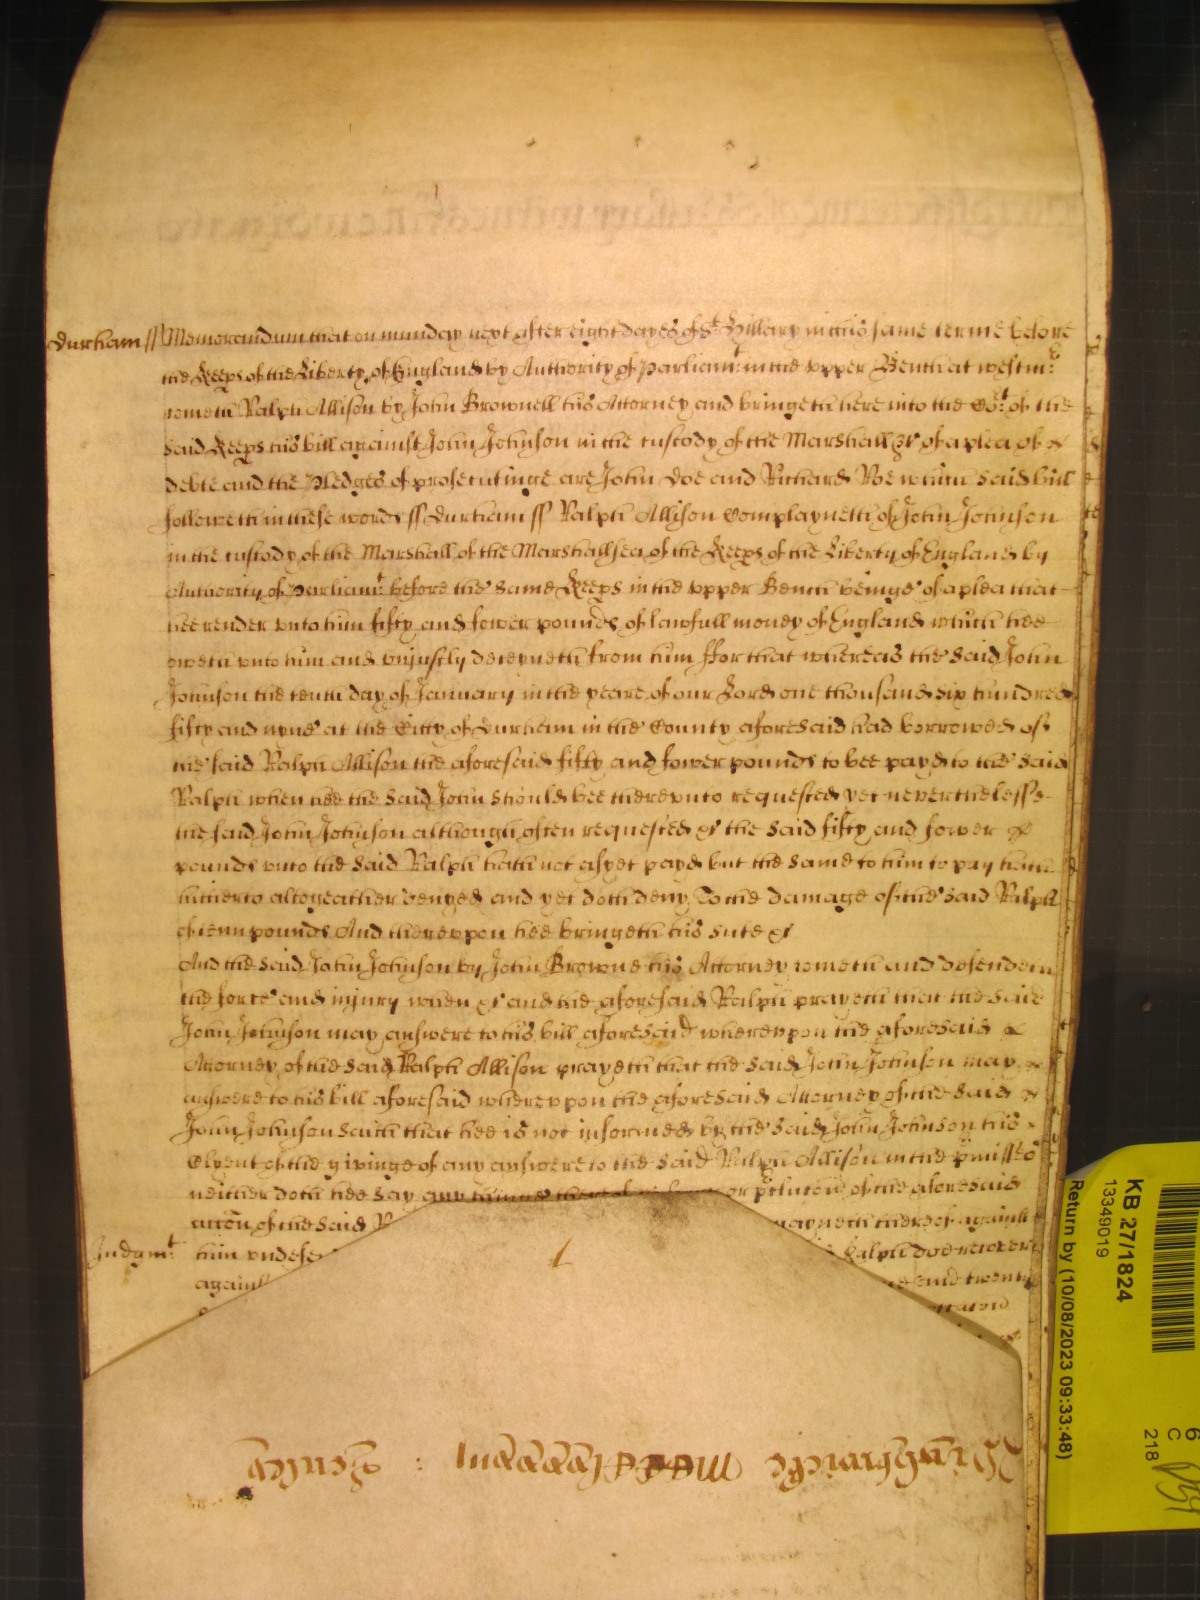 Durham ss Memorandum that on munday next after eight dayes of St Hillary in this same terme before
the Keeps of the Liberty of England by Authority of Parliamt: in the vpper Bench at westmr:
cometh Ralph Allison by John Brownell his Attorney and bringeth here into the Cot: of the
said Keeps his bill against John Johnson in the custody of the Marshall &c of a plea of
debte and the Pledges of prosecutinge are John Doe and Richard Roe which said bill
followeth in these words ss Durham ss Ralph Allison Complayneth of John Johnson
in the custody of the Marshall of the Marshallsea of the Keeps of the Liberty of England by
Authority of Parliamt: before the same Keeps in the vpper Bench beinge of a plea that
hee render vnto him fifty and fower pounds of lawfull money of England which hee
oweth vnto him and vnjustly deteyneth from him ffor that whereas the said John
Johnson the tenth day of January in the yeare of our Lord one thousand six hundred
fifty and nyne at the Citty of Durham in the County aforesaid had borrowed of
the said Ralph Allison the aforesaid fifty and fower pounds to bee payd to the said
Ralph when hee the said John should bee therevnto requested yet neverthelesse
the said John Johnson although often requested &c the said fifty and fower
pounds vnto the said Ralph hath not as yet payd but the same to him to pay hath
hitherto altogeather denyed and yet doth deny To the damage of the said Ralph
of tenn pounds And therevpon hee bringeth his sute &c
And the said John Johnson by John Browne his Attorney cometh and defendeth
the force and injury when &c and the aforesaid Ralph prayeth that the said
John Johnson may answere to his bill aforesaid wherevpon the aforesaid
Attorney of the said Ralph Allison prayeth that the said John Johnson may
answere to his bill aforesaid wherevpon the aforesaid Attorney of the said
John Johnson saith that hee is not informed by the said John Johnson his
Clyent of the givinge of any answere to the said Ralph Allison in the pmisses
neither doth hee say any thinge or pclusion of the aforesaid
accon of the said R thereof against
Judgmt: him vndefe Ralph doe recover
against and twenty
1
KB 27/1824
13349019
Return by (10/08/2023 09:33:48)
6
C
218